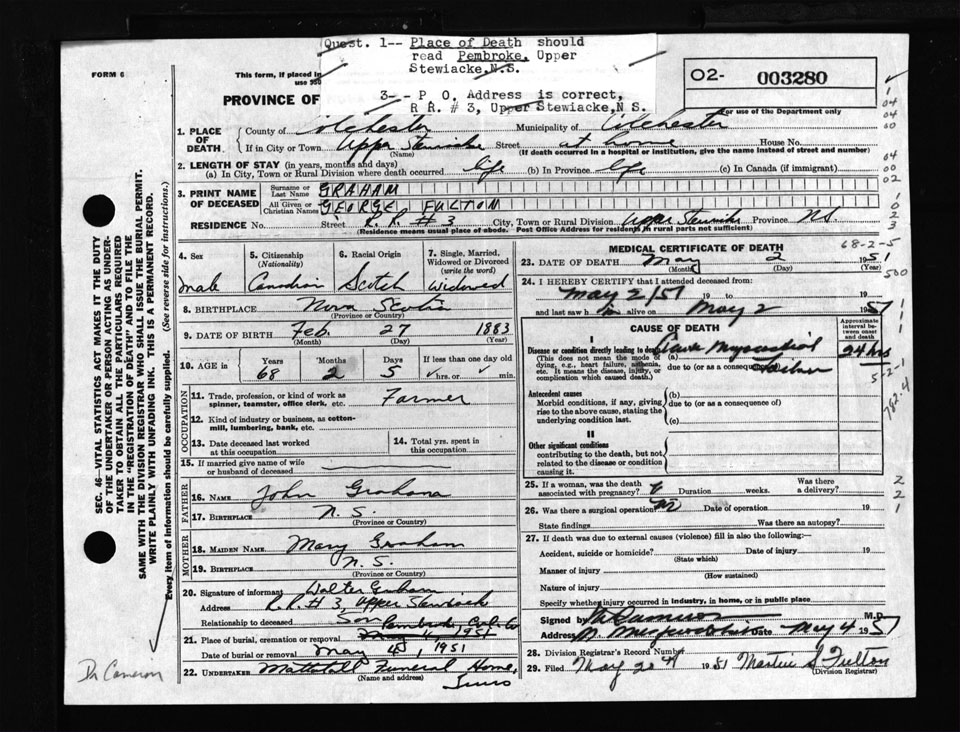 Quest. 1-- Place of Death should
read Pembroke, Upper
Stewiacke,N.S.
3-- P O. Address is correct,
R R. # 3, Upper Stewiacke,N S.
FORM 6
This form, if placed in
PROVINCE OF
02- 003280
For use of the Department only
1. PLACE OF DEATH
County of Colchester Municipality of Colchester
If in City or Town Upper Stewiacke Street at home House No.
(Name) (If death occurred in a hospital or institution, give the name instead of street and number)
2. LENGTH OF STAY (in years, months and days)
(a) In City, Town or Rural Division where death occurred life (b) In Province life (c) In Canada (if immigrant)
3. PRINT NAME OF DECEASED
Surname or Last Name GRAHAM
All Given or Christian Names GEORGE, FULTON
RESIDENCE No. Street R.R. # 3 City, Town or Rural Division Upper Stewiacke Province N.S.
(Residence means usual place of abode. Post Office Address for residents in rural parts not sufficient)
4. Sex
male
5. Citizenship (Nationality)
Canadian
6. Racial Origin
Scotch
7. Single, Married, Widowed or Divorced (write the word)
widowed
8. BIRTHPLACE Nova Scotia
(Province or Country)
9. DATE OF BIRTH Feb. 27 1883
(Month) (Day) (Year)
10. AGE in Years Months Days If less than one day old
68 2 5 hrs. or min.
OCCUPATION
11. Trade, profession, or kind of work as spinner, teamster, office clerk, etc. Farmer
12. Kind of industry or business, as cotton-mill, lumbering, bank, etc.
13. Date deceased last worked at this occupation
14. Total yrs. spent in this occupation
15. If married give name of wife or husband of deceased
FATHER
16. NAME John Graham
17. BIRTHPLACE N. S.
(Province or Country)
MOTHER
18. MAIDEN NAME Mary Graham
19. BIRTHPLACE N. S.
(Province or Country)
20. Signature of informant Walter Graham
Address R.R. # 3, Upper Stewiacke
Relationship to deceased Son
21. Place of burial, cremation or removal Pembroke, Col. Co
Date of burial or removal May 1951
22. UNDERTAKER Mattatall Funeral Home,
(Name and address) Truro
MEDICAL CERTIFICATE OF DEATH
68-2-5
23. DATE OF DEATH May 2 1951
(Month) (Day) (Year)
24. I HEREBY CERTIFY that I attended deceased from:
May 2/51 19 to 19
and last saw h alive on May 2 1951
CAUSE OF DEATH
Approximate interval between onset and death
I
Disease or condition directly leading to death
(This does not mean the mode of dying, e.g., heart failure, asthenia, etc. It means the disease, injury, or complication which caused death.)
(a) Acute Myocardial
due to (or as a consequence of) Failure
24 hrs
Antecedent causes
Morbid conditions, if any, giving rise to the above cause, stating the underlying condition last.
(b)
due to (or as a consequence of)
(c)
II
Other significant conditions
contributing to the death, but not related to the disease or condition causing it.
25. If a woman, was the death associated with pregnancy? Duration weeks. Was there a delivery?
26. Was there a surgical operation? Date of operation 19
State findings Was there an autopsy?
27. If death was due to external causes (violence) fill in also the following:—
Accident, suicide or homicide? Date of injury 19
(State which)
Manner of injury
(How sustained)
Nature of injury
Specify whether injury occurred in industry, in home, or in public place
Signed by M.D.
Address Date May 4 1951
28. Division Registrar's Record Number
29. Filed May 20 1951 Fulton
(Division Registrar)
SEC. 46—VITAL STATISTICS ACT MAKES IT THE DUTY
OF THE UNDERTAKER OR PERSON ACTING AS UNDER-
TAKER TO OBTAIN ALL THE PARTICULARS REQUIRED
IN THE "REGISTRATION OF DEATH" AND TO FILE THE
SAME WITH THE DIVISION REGISTRAR WHO SHALL ISSUE THE BURIAL PERMIT.
WRITE PLAINLY WITH UNFADING INK. THIS IS A PERMANENT RECORD.
Every item of information should be carefully supplied. (See reverse side for instructions).
Dr Cameron